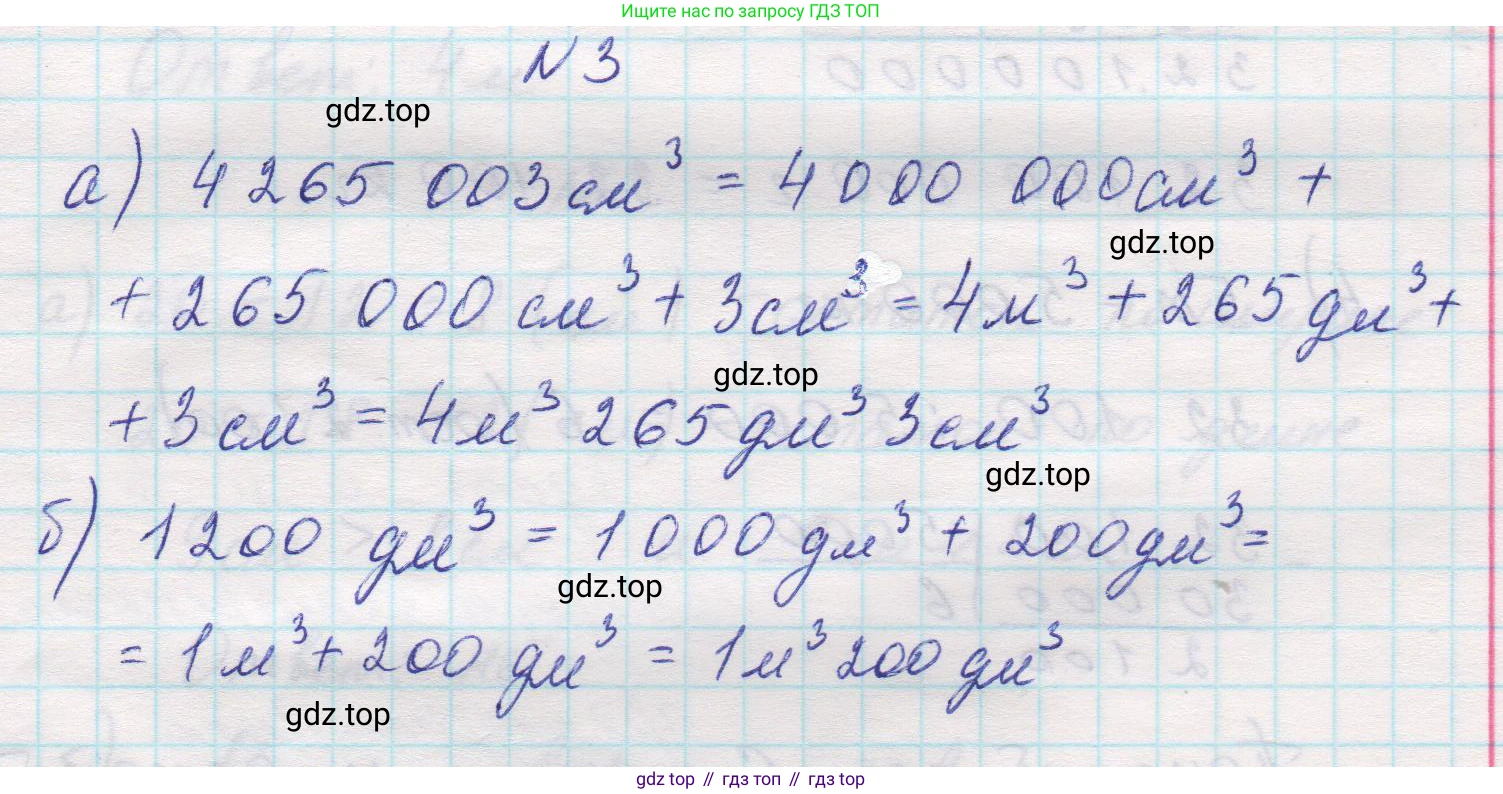 Ищите нас по запросу ГДЗ ТОП
N 3
gdz.top
а) 4 265 003 см³ = 4 000 000 см³ +
gdz.top
+ 265 000 см³ + 3 см³ = 4 м³ + 265 дм³ +
gdz.top
+ 3 см³ = 4 м³ 265 дм³ 3 см³
gdz.top
б) 1200 дм³ = 1 000 дм³ + 200 дм³ =
gdz.top
= 1 м³ + 200 дм³ = 1 м³ 200 дм³
gdz.top
gdz top // гдз топ // гдз top